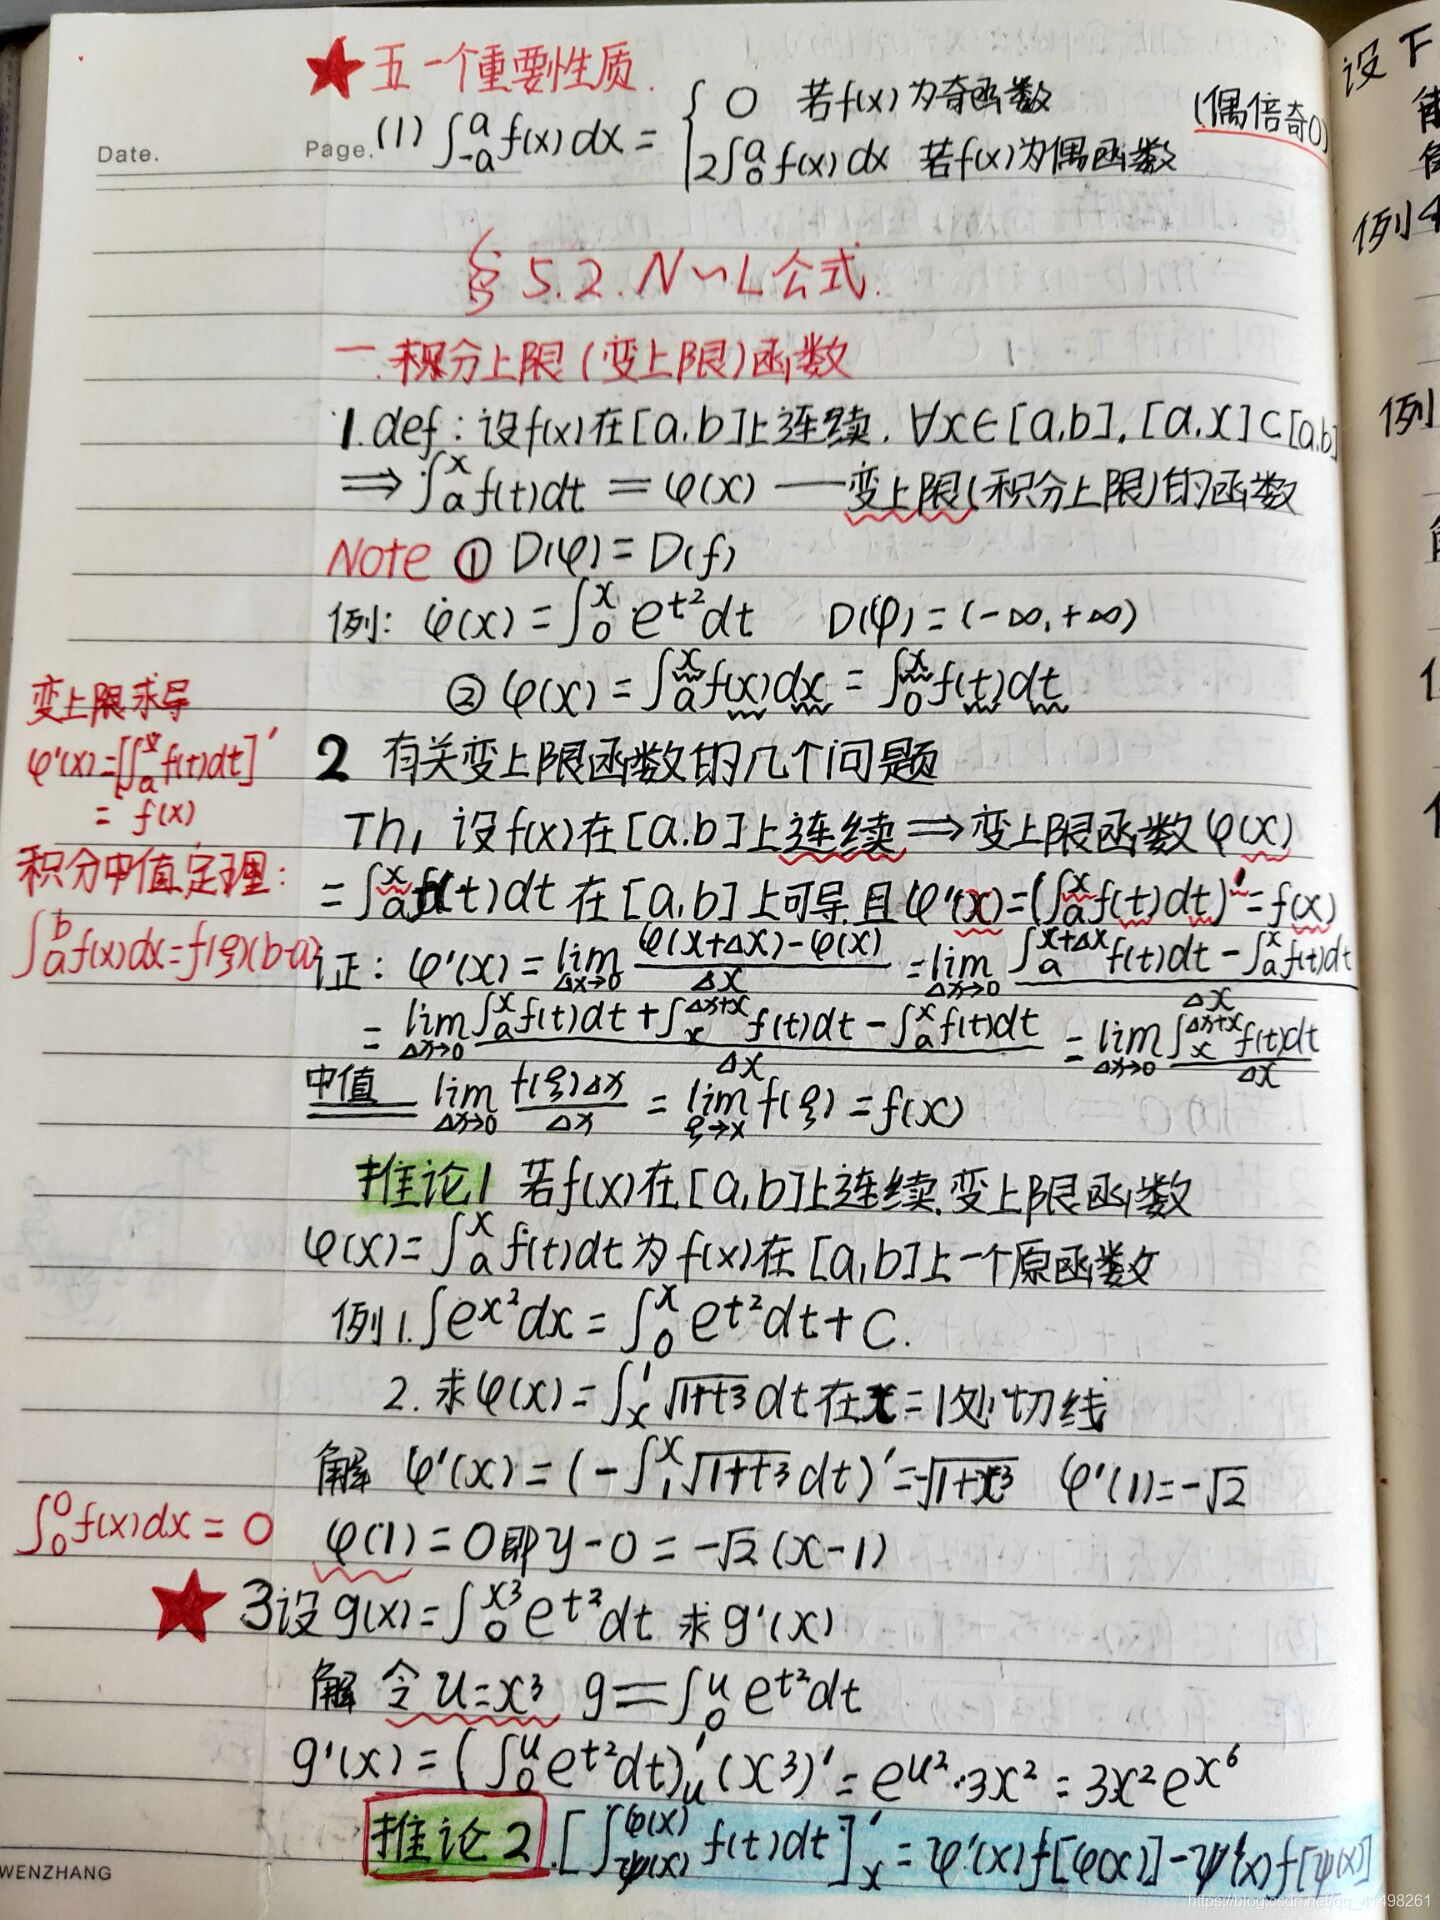 ★五 一个重要性质.
Date.
Page.
(1) ∫_{-a}^{a} f(x)dx = { 0 若f(x)为奇函数 (偶倍奇0)
2∫_0^a f(x)dx 若f(x)为偶函数
§5.2. N~L公式.
一.积分上限(变上限)函数
1.def: 设f(x)在[a.b]上连续. ∀x∈[a.b]. [a.x]⊂[a.b]
⟹ ∫_a^x f(t)dt = φ(x) —— 变上限(积分上限)的函数
Note ① D(φ) = D(f)
例: φ(x) = ∫_0^x e^{t²}dt D(φ) = (-∞,+∞)
② φ(x) = ∫_a^x f(x)dx = ∫_0^x f(t)dt
2 有关变上限函数的几个问题
Th₁ 设f(x)在[a.b]上连续 ⟹ 变上限函数φ(x)
= ∫_a^x f(t)dt 在[a,b]上可导.且φ'(x)=(∫_a^x f(t)dt)'=f(x)
证: φ'(x) = lim_{Δx→0} (φ(x+Δx)-φ(x))/Δx = lim_{Δx→0} (∫_a^{x+Δx} f(t)dt - ∫_a^x f(t)dt)/Δx
= lim_{Δx→0} (∫_a^x f(t)dt + ∫_x^{Δx+x} f(t)dt - ∫_a^x f(t)dt)/Δx = lim_{Δx→0} (∫_x^{Δx+x} f(t)dt)/Δx
中值 lim_{Δx→0} (f(ξ)Δx)/Δx = lim_{ξ→x} f(ξ) = f(x)
推论1 若f(x)在[a,b]上连续.变上限函数
φ(x) = ∫_a^x f(t)dt为f(x)在[a,b]上一个原函数
例1.∫e^{x²}dx = ∫_0^x e^{t²}dt + C.
2. 求φ(x) = ∫_x^1 √(1+t³) dt在x=1处切线
解 φ'(x) = (-∫_1^x √(1+t³) dt)' = -√(1+x³) φ'(1)=-√2
φ(1) = 0即y-0 = -√2(x-1)
★ 3设g(x) = ∫_0^{x³} e^{t²}dt 求g'(x)
解 令u=x³ g = ∫_0^u e^{t²}dt
g'(x) = (∫_0^u e^{t²}dt)'_u (x³)' = e^{u²}·3x² = 3x²e^{x⁶}
推论2.[∫_{ψ(x)}^{φ(x)} f(t)dt]'_x = φ'(x)f[φ(x)]-ψ'(x)f[ψ(x)]
变上限求导
φ'(x)=[∫_a^x f(t)dt]'
= f(x)
积分中值定理:
∫_a^b f(x)dx=f(ξ)(b-a)
∫_0^0 f(x)dx = 0
WENZHANG
设
例4
例
https://blog.csdn.net/qq_41498261